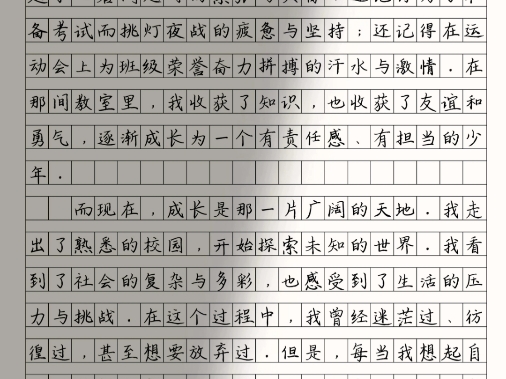 备考试而挑灯夜战的疲惫与坚持；还记得在运
动会上为班级荣誉奋力拼搏的汗水与激情．在
那间教室里，我收获了知识，也收获了友谊和
勇气，逐渐成长为一个有责任感、有担当的少
年．
而现在，成长是那一片广阔的天地．我走
出了熟悉的校园，开始探索未知的世界．我看
到了社会的复杂与多彩，也感受到了生活的压
力与挑战．在这个过程中，我曾经迷茫过、彷
徨过，甚至想要放弃过．但是，每当我想起自